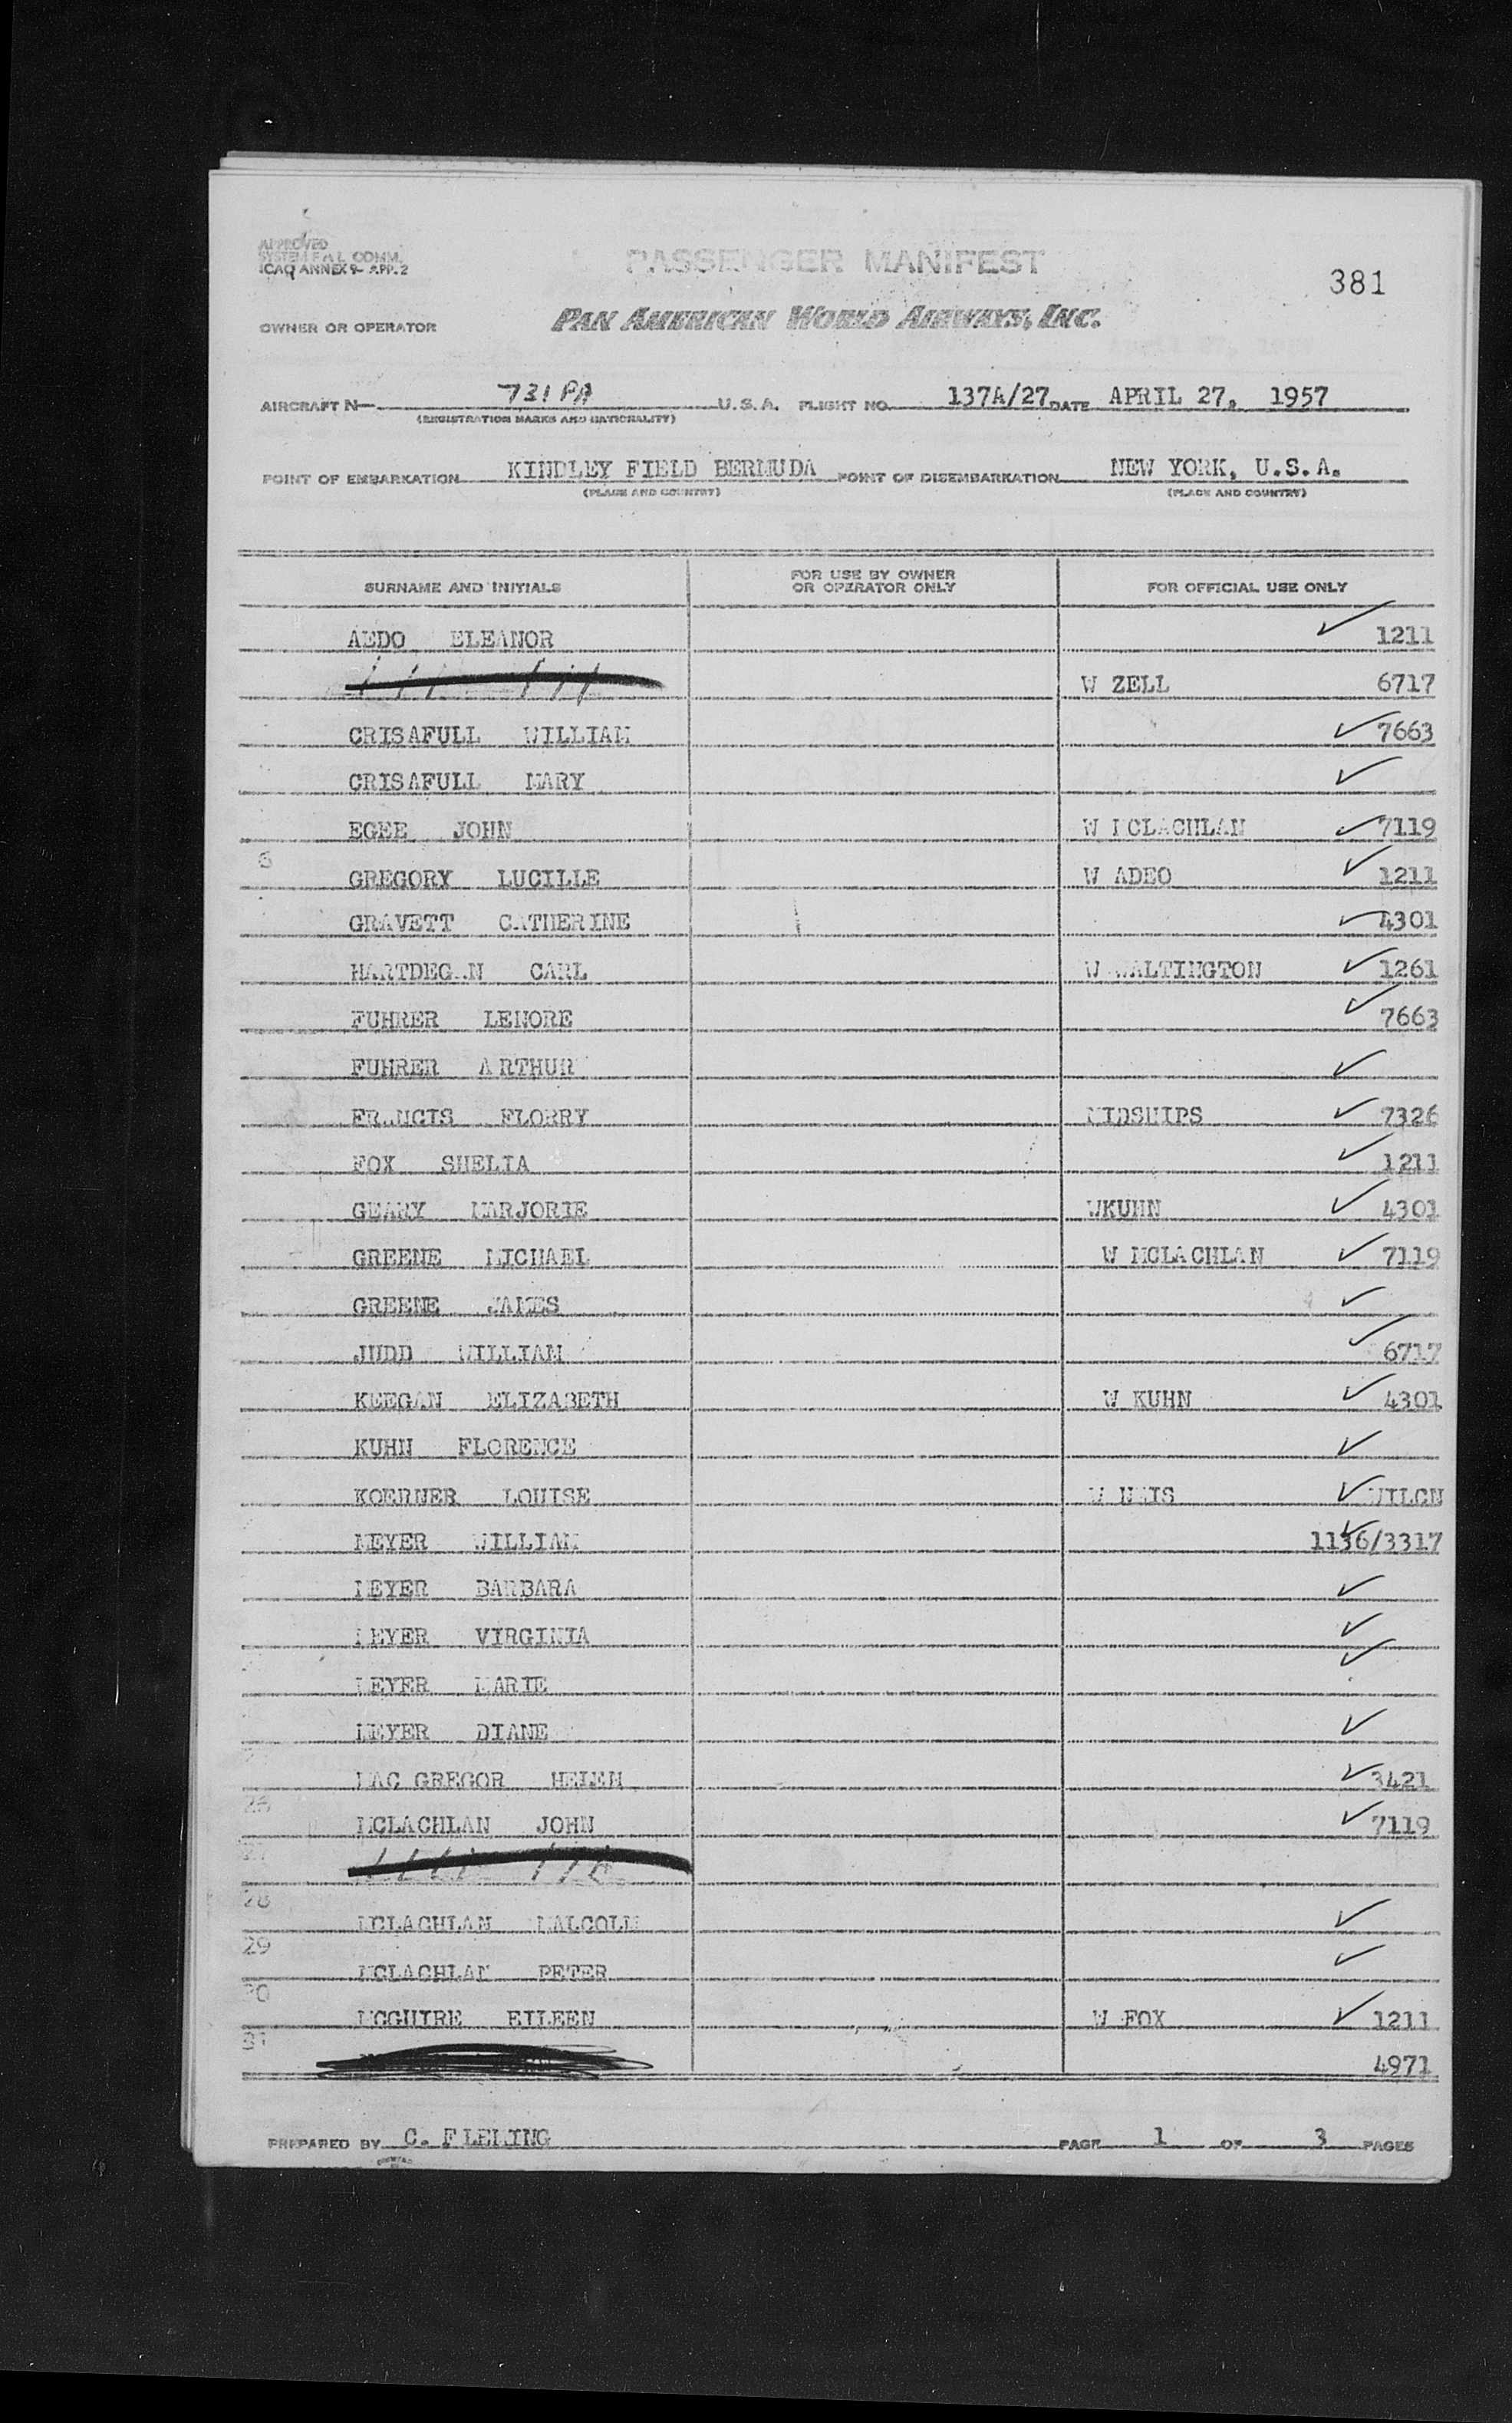 APPROVED
SYSTEM F A L COMM.
ICAO ANNEX 9- APP. 2
PASSENGER MANIFEST
381
OWNER OR OPERATOR PAN AMERICAN WORLD AIRWAYS, INC.
AIRCRAFT N- 731 PA U.S.A. FLIGHT NO. 137A/27 DATE APRIL 27, 1957
(REGISTRATION MARKS AND NATIONALITY)
POINT OF EMBARKATION KINDLEY FIELD BERMUDA POINT OF DISEMBARKATION NEW YORK, U.S.A.
(PLACE AND COUNTRY) (PLACE AND COUNTRY)
SURNAME AND INITIALS FOR USE BY OWNER OR OPERATOR ONLY FOR OFFICIAL USE ONLY
AEDO ELEANOR ✓ 1211
W ZELL 6717
CRISAFULL WILLIAM ✓ 7663
CRISAFULL MARY ✓
EGEE JOHN W MCLACHLAN ✓ 7119
6 GREGORY LUCILLE W ADEO ✓ 1211
GRAVETT CATHERINE ✓ 4301
HARTDEGAN CARL W WALTINGTON ✓ 1261
FUHRER LENORE ✓ 7663
FUHRER ARTHUR ✓
FRANCIS FLORRY MIDSHIPS ✓ 7326
FOX SHELIA ✓ 1211
GEARY MARJORIE WKUHN ✓ 4301
GREENE MICHAEL W MCLACHLAN ✓ 7119
GREENE JAMES ✓
JUDD WILLIAM ✓ 6717
KEEGAN ELIZABETH W KUHN ✓ 4301
KUHN FLORENCE ✓
KOERNER LOUISE ✓
MEYER WILLIAM ✓ 1136/3317
MEYER BARBARA ✓
MEYER VIRGINIA ✓
MEYER MARIE ✓
MEYER DIANE ✓
MAC GREGOR HELEN ✓ 3421
26 MCLACHLAN JOHN ✓ 7119
27
28 MCLACHLAN MALCOLM ✓
29 MCLACHLAN PETER ✓
30 MCGUIRE EILEEN W FOX ✓ 1211
31 4971
PREPARED BY C. FLEMING PAGE 1 OF 3 PAGES